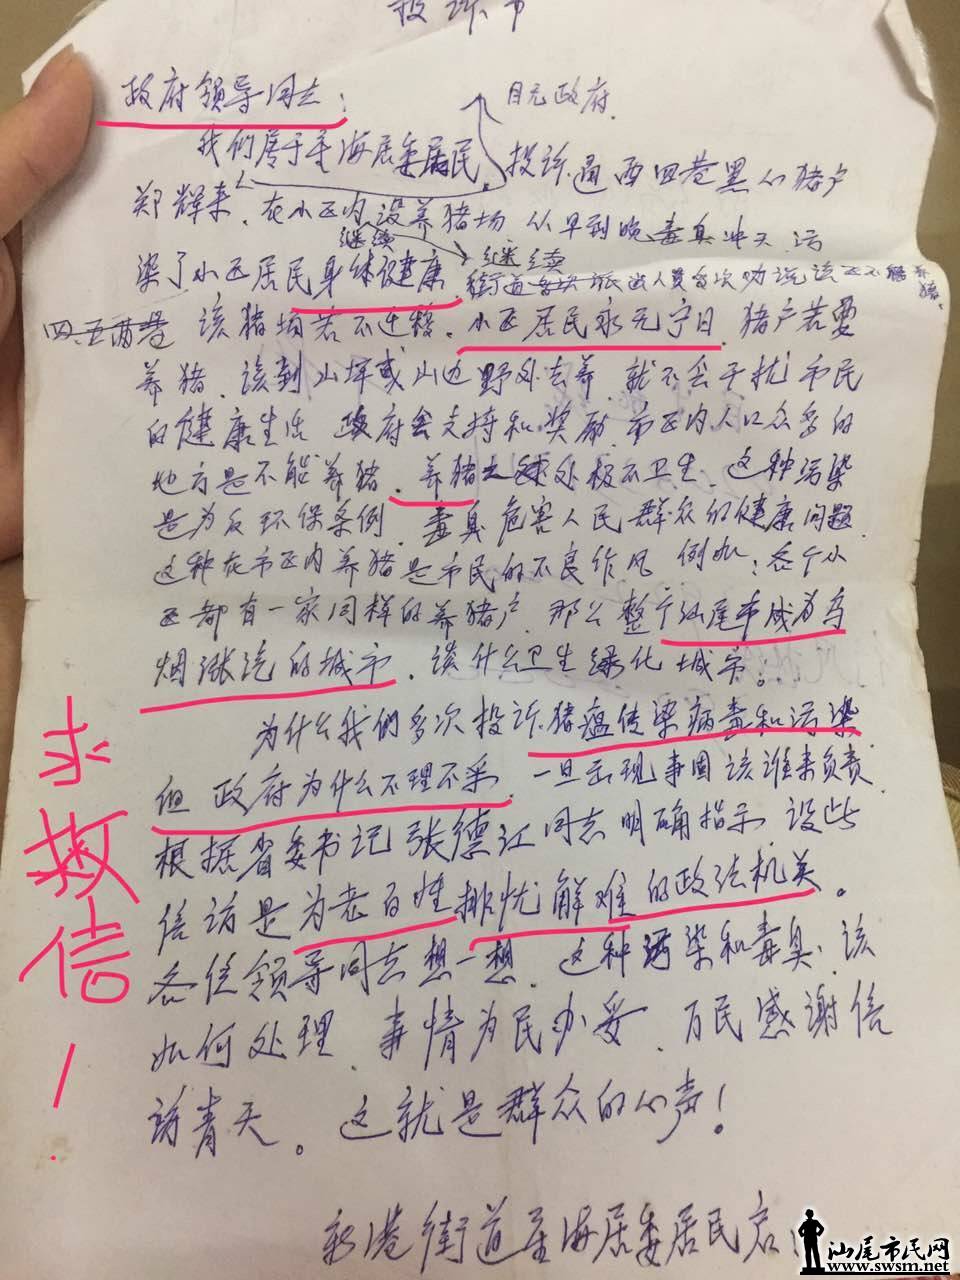 投诉书
政府领导同志:
目无政府
我们居于海居委居民,投诉通西四巷黑心猪户
郑辉来,在小区内设养猪场,从早到晚毒臭冲天,污
继续 继续
染了小区居民身体健康,街道派出人员多次劝说该区不能养猪
四.五两巷 该猪场若不迁移。小区居民永无宁日,猪户若要
养猪,该到山埔或山边野外去养,就不会干扰市民
的健康生活 政府会支持和奖励,市区内人口众多的
地方是不能养猪,养猪之处极不卫生、这种污染
是为反环保条例,毒臭危害人民群众的健康问题
这种在市区内养猪是市民的不良作风 例如:各个小
区都有一家同样的养猪户,那么整个汕尾市成为乌
烟涨汽的城市,谈什么卫生绿化城市。
为什么我们多次投诉猪瘟传染病毒和污染
但政府为什么不理不采,一旦出现事固该谁来负责
根据省委书记张德江同志明确指示 设些
信访是为老百姓排忧解难的政法机关。
各位领导同志想一想,这种污染和毒臭、该
如何处理,事情为民办妥,万民感谢信
访青天。这就是群众的心声!
新港街道海居委居民启
求救信!
汕尾市民网
www.swsm.net